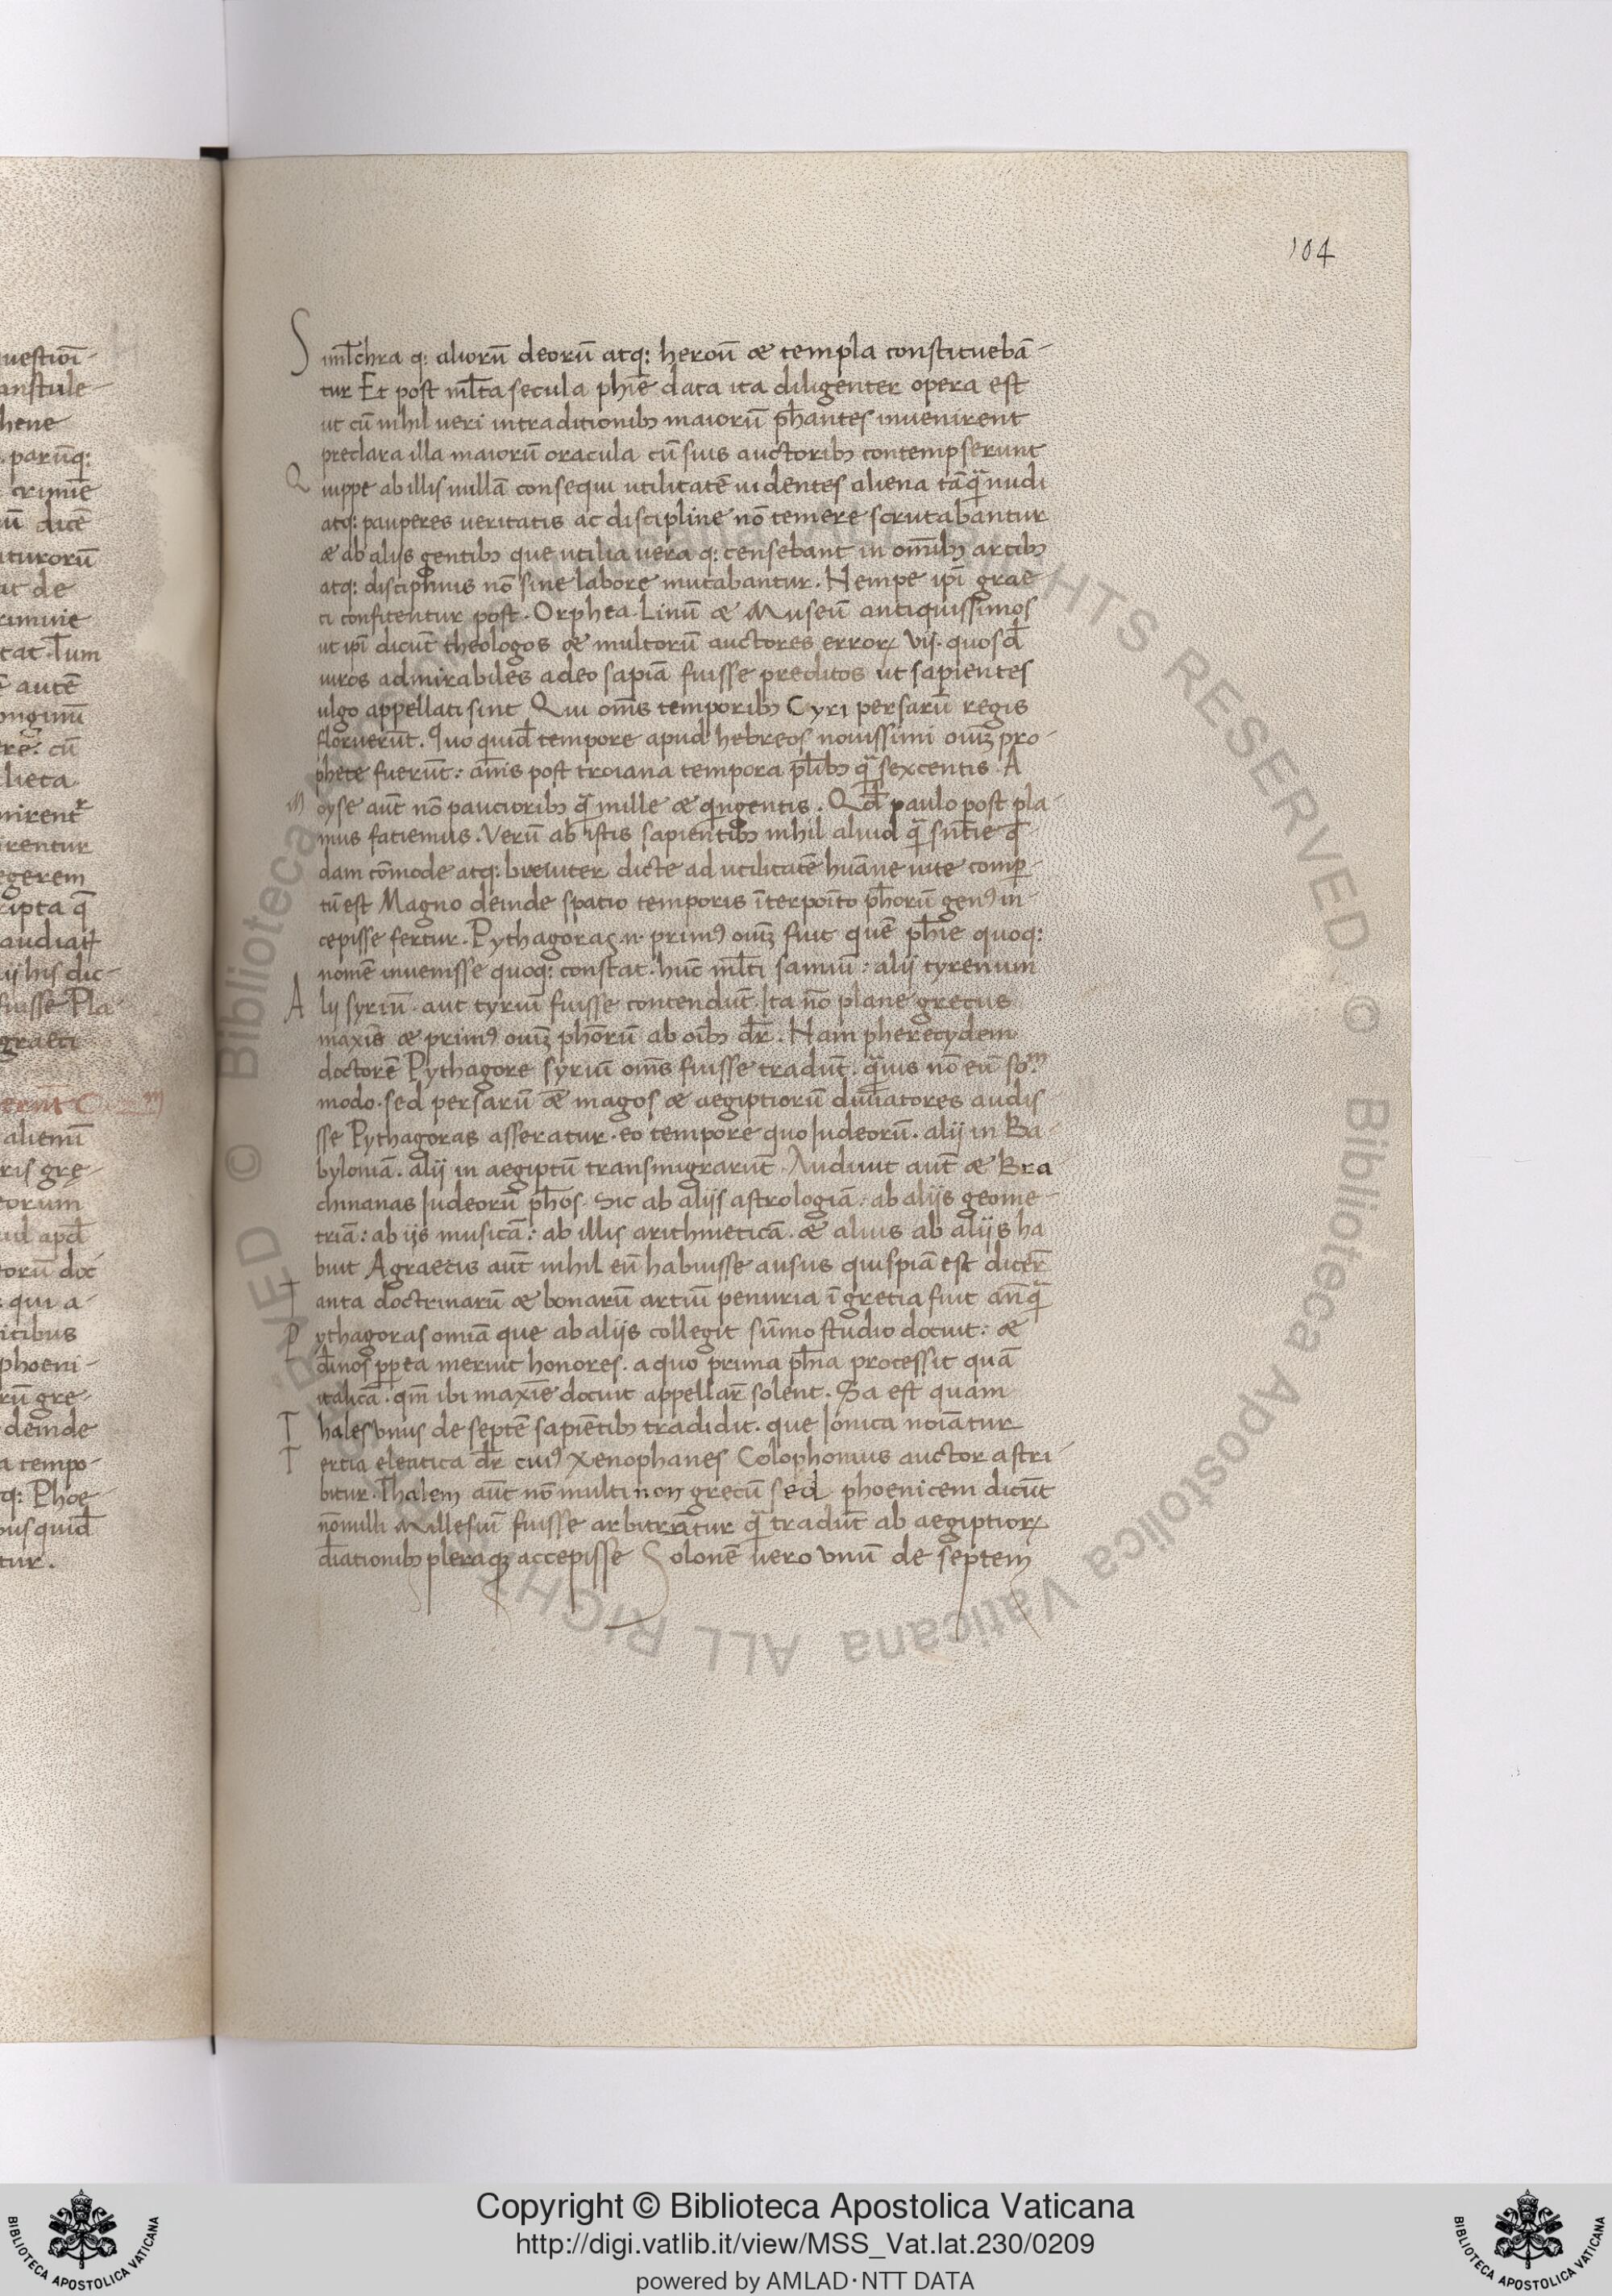 104
Siml̄chra q: aliorū deorū atq: heroū æ templa constituebā-
tur Et post ml̄ta secula phīe data ita diligenter opera est
ut cū nihil ueri intraditionibꝫ maiorū ph̄antes inuenirent
preclara illa maiorū oracula cū suis auctoribꝫ contempserunt
Quippe ab illis nullā consequi utilitatē uidentes aliena tāq̄ nudi
atq: pauperes ueritatis ac discipline nō temere scrutabantur
æ ab alijs gentibꝫ que utilia uera q: censebant in om̄ibꝫ artibꝫ
atq: disciplinis nō sine labore mutabantur. Nempe ip̄i grae
ci confitentur post. Orphea. Linū æ Museū antiquissimos
ut ip̄i dicūt theologos æ multorū auctores errorꝝ vij. quosd̄
uiros admirabiles adeo sapiā fuisse preditos ut sapientes
ulgo appellati sint Qui om̄s temporibꝫ Cyri persarū regis
floruerūt. Quo quid̄ tempore apud hebreos nouissimi oiūꝫ pro-
phete fuerūt: an̄is post troiana tempora pl̄ibꝫ q̄ sexcentis. A
Moyse aūt nō paucioribꝫ q̄ mille æ qingentis. Qd̄ paulo post pla-
nius faciemus. Verū ab istis sapientibꝫ nihil aliud q̄ sn̄tie q̄
dam cōmode atq: breuiter dicte ad utilitatē huāne uite comp̄-
tū est Magno deinde spatio temporis īterpoīto ph̄orū genꝰ in-
cepisse fertur. Pythagoras .n. primꝰ oiūꝫ fuit quē ph̄ie quoq:
nomē inuenisse quoq: constat. hūc ml̄ti samiū: alij tyrenum
Alij syriū. aut tyriū fuisse contendūt. Ita nō plane grecus
maxīs æ primꝰ oiūꝫ phōrū ab oībꝫ dr̄. Nam pherecydem
doctorē Pythagore syriū om̄s fuisse tradūt. q̄uis nō eū so.m
modo. sed persarū ǣ magos æ aegiptiorū diuīatores audis
sse Pythagoras asseratur. eo tempore quo Iudeorū. alij in Ba-
byloniā. alij in aegiptū transmigrarūt. Audiuit aūt æ Bra
chmanas Iudeorū ph̄os. Sic ab alijs astrologiā: ab alijs geome-
triā: ab ijs musicā: ab illis arithmeticā. æ alius ab alijs ha
buit A graecis aūt nihil eū habuisse ausus quispiā est dicer̄
Tanta doctrinarū æ bonarū artiū penuria ī gretia fuit an̄q̄
Pythagoras omiā que ab alijs collegit sūmo studio docuit: æ
diuīos pp̄ea meruit honores. a quo prima ph̄ia processit quā
italicā. qm̄ ibi maxīe docuit appellar̄ solent. Sa est quam
Thales vnus de septē sapiētibꝫ tradidit. que Ionica noīatur
Tertia eleatica dr̄ cuiꝰ Xenophanes Colophonius auctor astri-
bitur. Thalem aūt nō multi non grecū sed phoenicem dicūt
nōnulli Millesiū fuisse arbitrātur q̄ tradūt ab aegiptiorꝝ
diuīationibꝫ pleraqꝫ accepisse Solonē uero vnū de septem
Copyright © Biblioteca Apostolica Vaticana
http://digi.vatlib.it/view/MSS_Vat.lat.230/0209
powered by AMLAD·NTT DATA